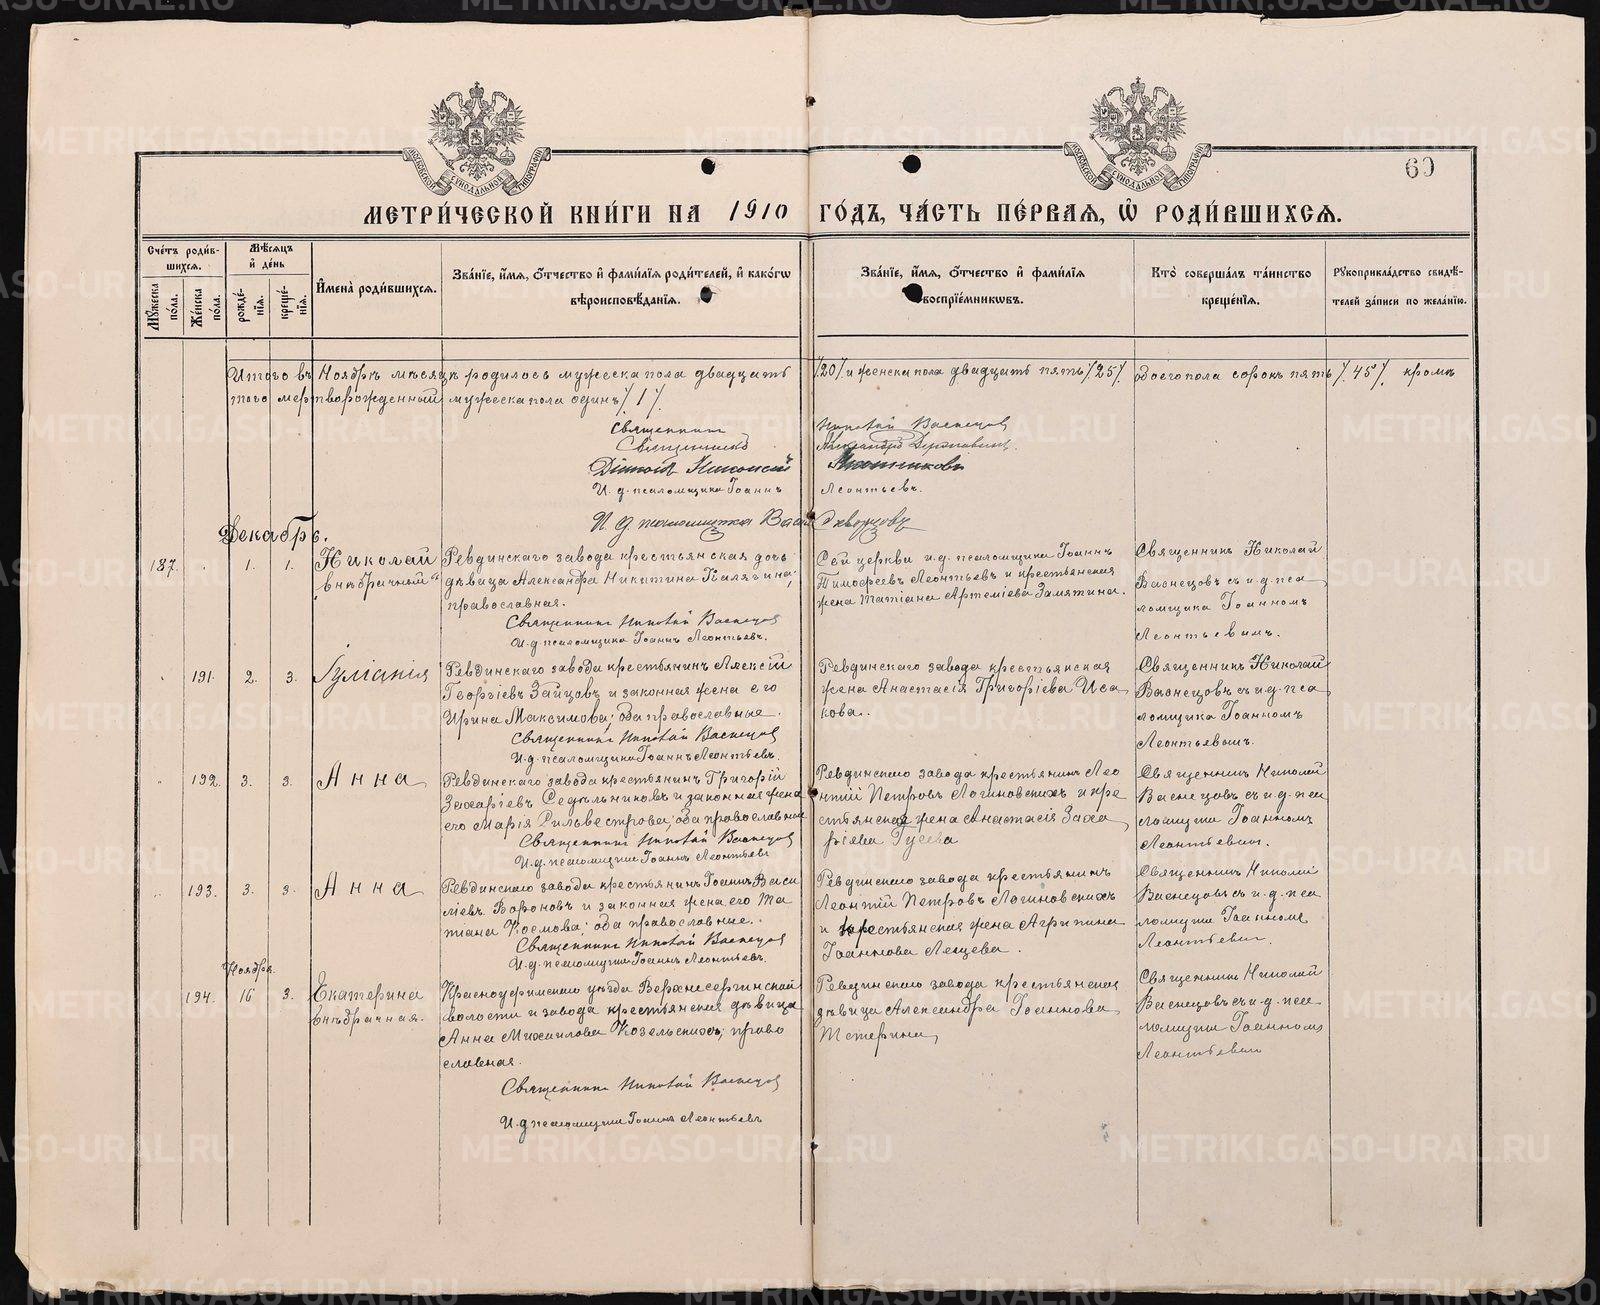 60
МОСКОВСКОЙ СѴНОДАЛЬНОЙ ТИПОГРАФІИ
МОСКОВСКОЙ СѴНОДАЛЬНОЙ ТИПОГРАФІИ
МЕТРИ́ЧЕСКОЙ КНИ́ГИ НА 1910 ГО́ДЪ, ЧА́СТЬ ПЕ́РВАѦ, Ѡ҆ РОДИ́ВШИХСѦ.
Сче́тъ роди́в-
шихсѧ.
Мꙋ́жеска по́ла.
Же́нска по́ла.
Мѣ́сѧцъ и҆ де́нь
рожде́-нїѧ.
креще́-нїѧ.
И҆мена̀ роди́вшихсѧ.
Зва́нїе, и҆́мѧ, ѻ҆́тчество и҆ фами́лїѧ роди́телей, и҆ како́гѡ
вѣроисповѣ́данїѧ.
Зва́нїе, и҆́мѧ, ѻ҆́тчество и҆ фами́лїѧ
воспрїе́мникѡвъ.
Кто̀ соверша́лъ та́инство
креще́нїѧ.
Рꙋкоприкла́дство свидѣ́-
телей за́писи по жела́нїю.
Итого въ Ноябрѣ мѣсяцѣ родилось мужеска пола двадцать /20/ и женска пола двадцать пять /25/, обоего пола сорокъ пять /45/, кромѣ
того мертворожденный мужеска пола одинъ /1/.
Священникъ Николай Васнецовъ
Священникъ Александръ
Діаконъ Николай
И. д. псаломщика Іоаннъ Леонтьевъ.
И. д. псаломщика
Декабрь.
187. 1. 1. Николай
„внѣбрачный“
Ревдинскаго завода крестьянская дочь
дѣвица Александра Никитина Калягина;
православная.
Священникъ Николай Васнецовъ
И. д. псаломщика Іоаннъ Леонтьевъ.
Сей церкви и. д. псаломщика Іоаннъ
Тимофеевъ Леонтьевъ и крестьянская
жена Татіана Артеміева Замятина.
Священникъ Николай
Васнецовъ съ и. д. пса
ломщика Іоанномъ
Леонтьевымъ.
191. 2. 3. Іуліанія
Ревдинскаго завода крестьянинъ Алексій
Георгіевъ Зайцовъ и законная жена его
Ирина Максимова; оба православные.
Священникъ Николай Васнецовъ
И. д. псаломщика Іоаннъ Леонтьевъ.
Ревдинскаго завода крестьянская
жена Анастасія Григоріева Иса
кова.
Священникъ Николай
Васнецовъ съ и. д. пса
ломщика Іоанномъ
Леонтьевымъ.
192. 3. 3. Анна
Ревдинскаго завода крестьянинъ Григорій
Захаріевъ Седѣльниковъ и законная жена
его Марія Сильвестрова; оба православные
Священникъ Николай Васнецовъ
И. д. псаломщика Іоаннъ Леонтьевъ
Ревдинскаго завода крестьянинъ Лео
нтій Петровъ Логиновскихъ и кре
стьянская жена Анастасія Заха
ріева Гусева
Священникъ Николай
Васнецовъ съ и. д. пса
ломщика Іоанномъ
Леонтьевымъ.
193. 3. 3. Анна
Ревдинскаго завода крестьянинъ Іоаннъ Васи
ліевъ Вороновъ и законная жена его Та
тіана Космова; оба православные.
Священникъ Николай Васнецовъ
И. д. псаломщика Іоаннъ Леонтьевъ.
Ревдинскаго завода крестьянинъ
Леонтій Петровъ Логиновскихъ
и крестьянская жена Агрипина
Іоаннова Лещева.
Священникъ Николай
Васнецовъ съ и. д. пса
ломщика Іоанномъ
Леонтьевымъ.
Ноября.
194. 16 3. Екатерина
внѣбрачная.
Красноуфимскаго уѣзда Верхнесергинской
волости и завода крестьянская дѣвица
Анна Михаилова Козельскихъ; право
славная.
Священникъ Николай Васнецовъ
И. д. псаломщика Іоаннъ Леонтьевъ
Ревдинскаго завода крестьянская
дѣвица Александра Іоаннова
Тетерина
Священникъ Николай
Васнецовъ съ и. д. пса
ломщика Іоанномъ
Леонтьевымъ
METRIKI.GASO-URAL.RU